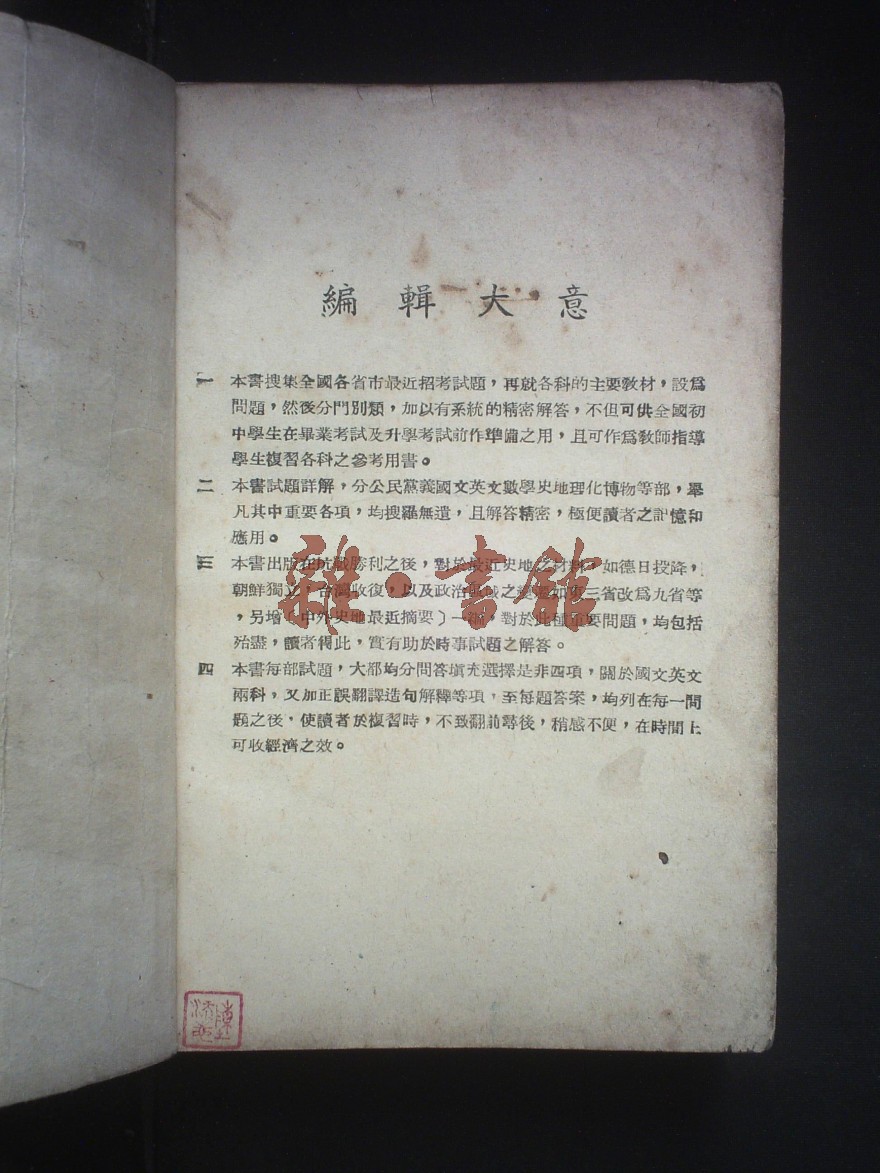 編輯大意
一 本書搜集全國各省市最近招考試題，再就各科的主要教材，設爲
問題，然後分門別類，加以有系統的精密解答，不但可供全國初
中學生在畢業考試及升學考試前作準備之用，且可作爲教師指導
學生複習各科之參考用書。
二 本書試題詳解，分公民黨義國文英文數學史地理化博物等部，舉
凡其中重要各項，均搜羅無遺，且解答精密，極便讀者之記憶和
應用。
三 本書出版在抗戰勝利之後，對於最近史地之材料，如德日投降，
朝鮮獨立，台灣收復，以及政治區域之變遷如東三省改爲九省等
，另增〔中外史地最近摘要〕一編，對於此種重要問題，均包括
殆盡，讀者得此，實有助於時事試題之解答。
四 本書每部試題，大部均分問答填充選擇是非四項，關於國文英文
兩科，又加正誤翻譯造句解釋等項，至每題答案，均列在每一問
題之後，使讀者於複習時，不致翻前尋後，稍感不便，在時間上
可收經濟之效。
雜·書館